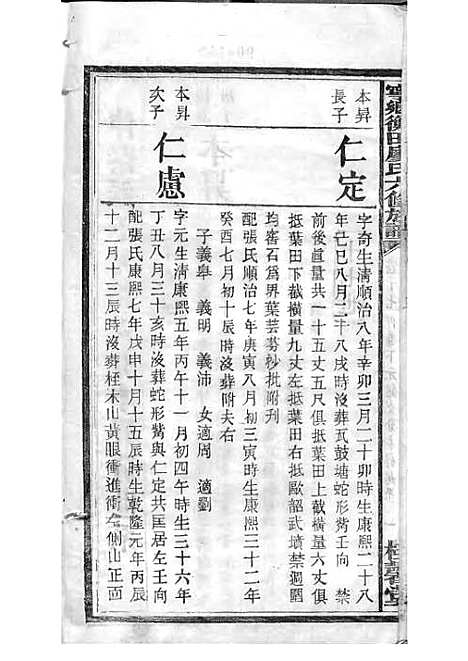 寧鄉衡田廖氏六修族譜
本昇
長子
仁定
字奇生清順治八年辛卯三月二十卯時生康熙二十八
年己巳八月二十八戌時沒葬瓦鼓塘蛇形觜壬向 禁
前後直量共一十五丈五尺俱抵葉田上截橫量六丈俱
抵葉田下截橫量九丈左抵葉田右抵歐韶武墳禁週圍
均窖石為界葉芸芬秒批附刊
配張氏順治七年庚寅八月初三寅時生康熙三十二年
癸酉七月初十辰時沒葬附夫右
子義皐 義明 義沛 女適周 適劉
本昇
次子
仁慮
字元生清康熙五年丙午十一月初四午時生三十六年
丁丑八月三十亥時沒葬蛇形觜與仁定共囯居左壬向
配張氏康熙七年戊申十月十五辰時生乾隆元年丙辰
十二月十三辰時沒葬枉木山黃眼衝進衝左側山正面